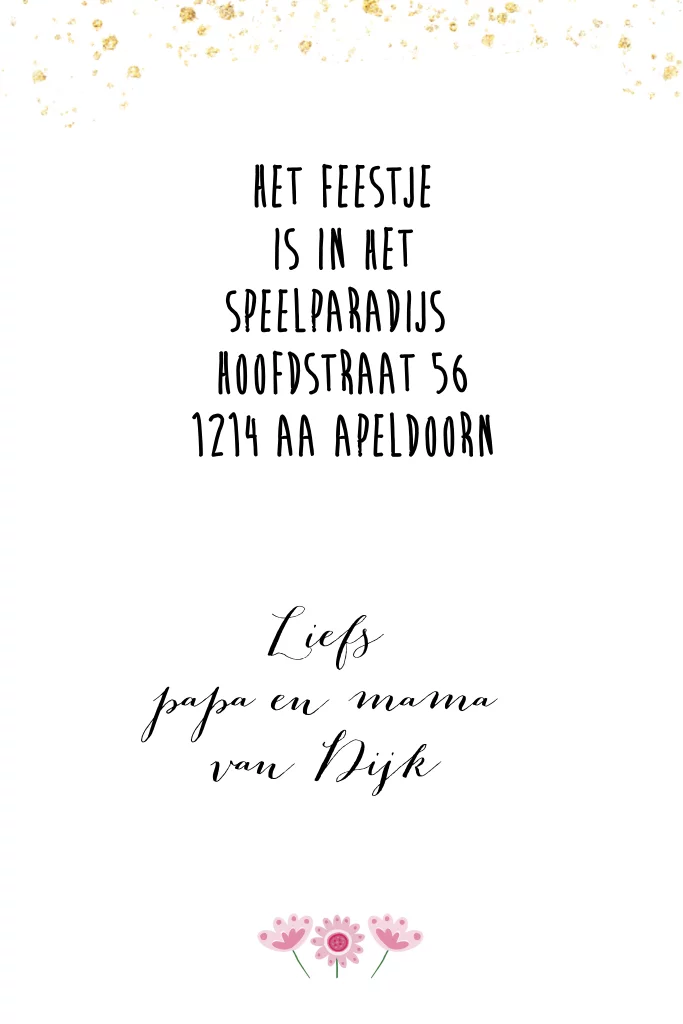 HET FEESTJE
IS IN HET
SPEELPARADIJS
HOOFDSTRAAT 56
1214 AA APELDOORN
Liefs
papa en mama
van Dijk